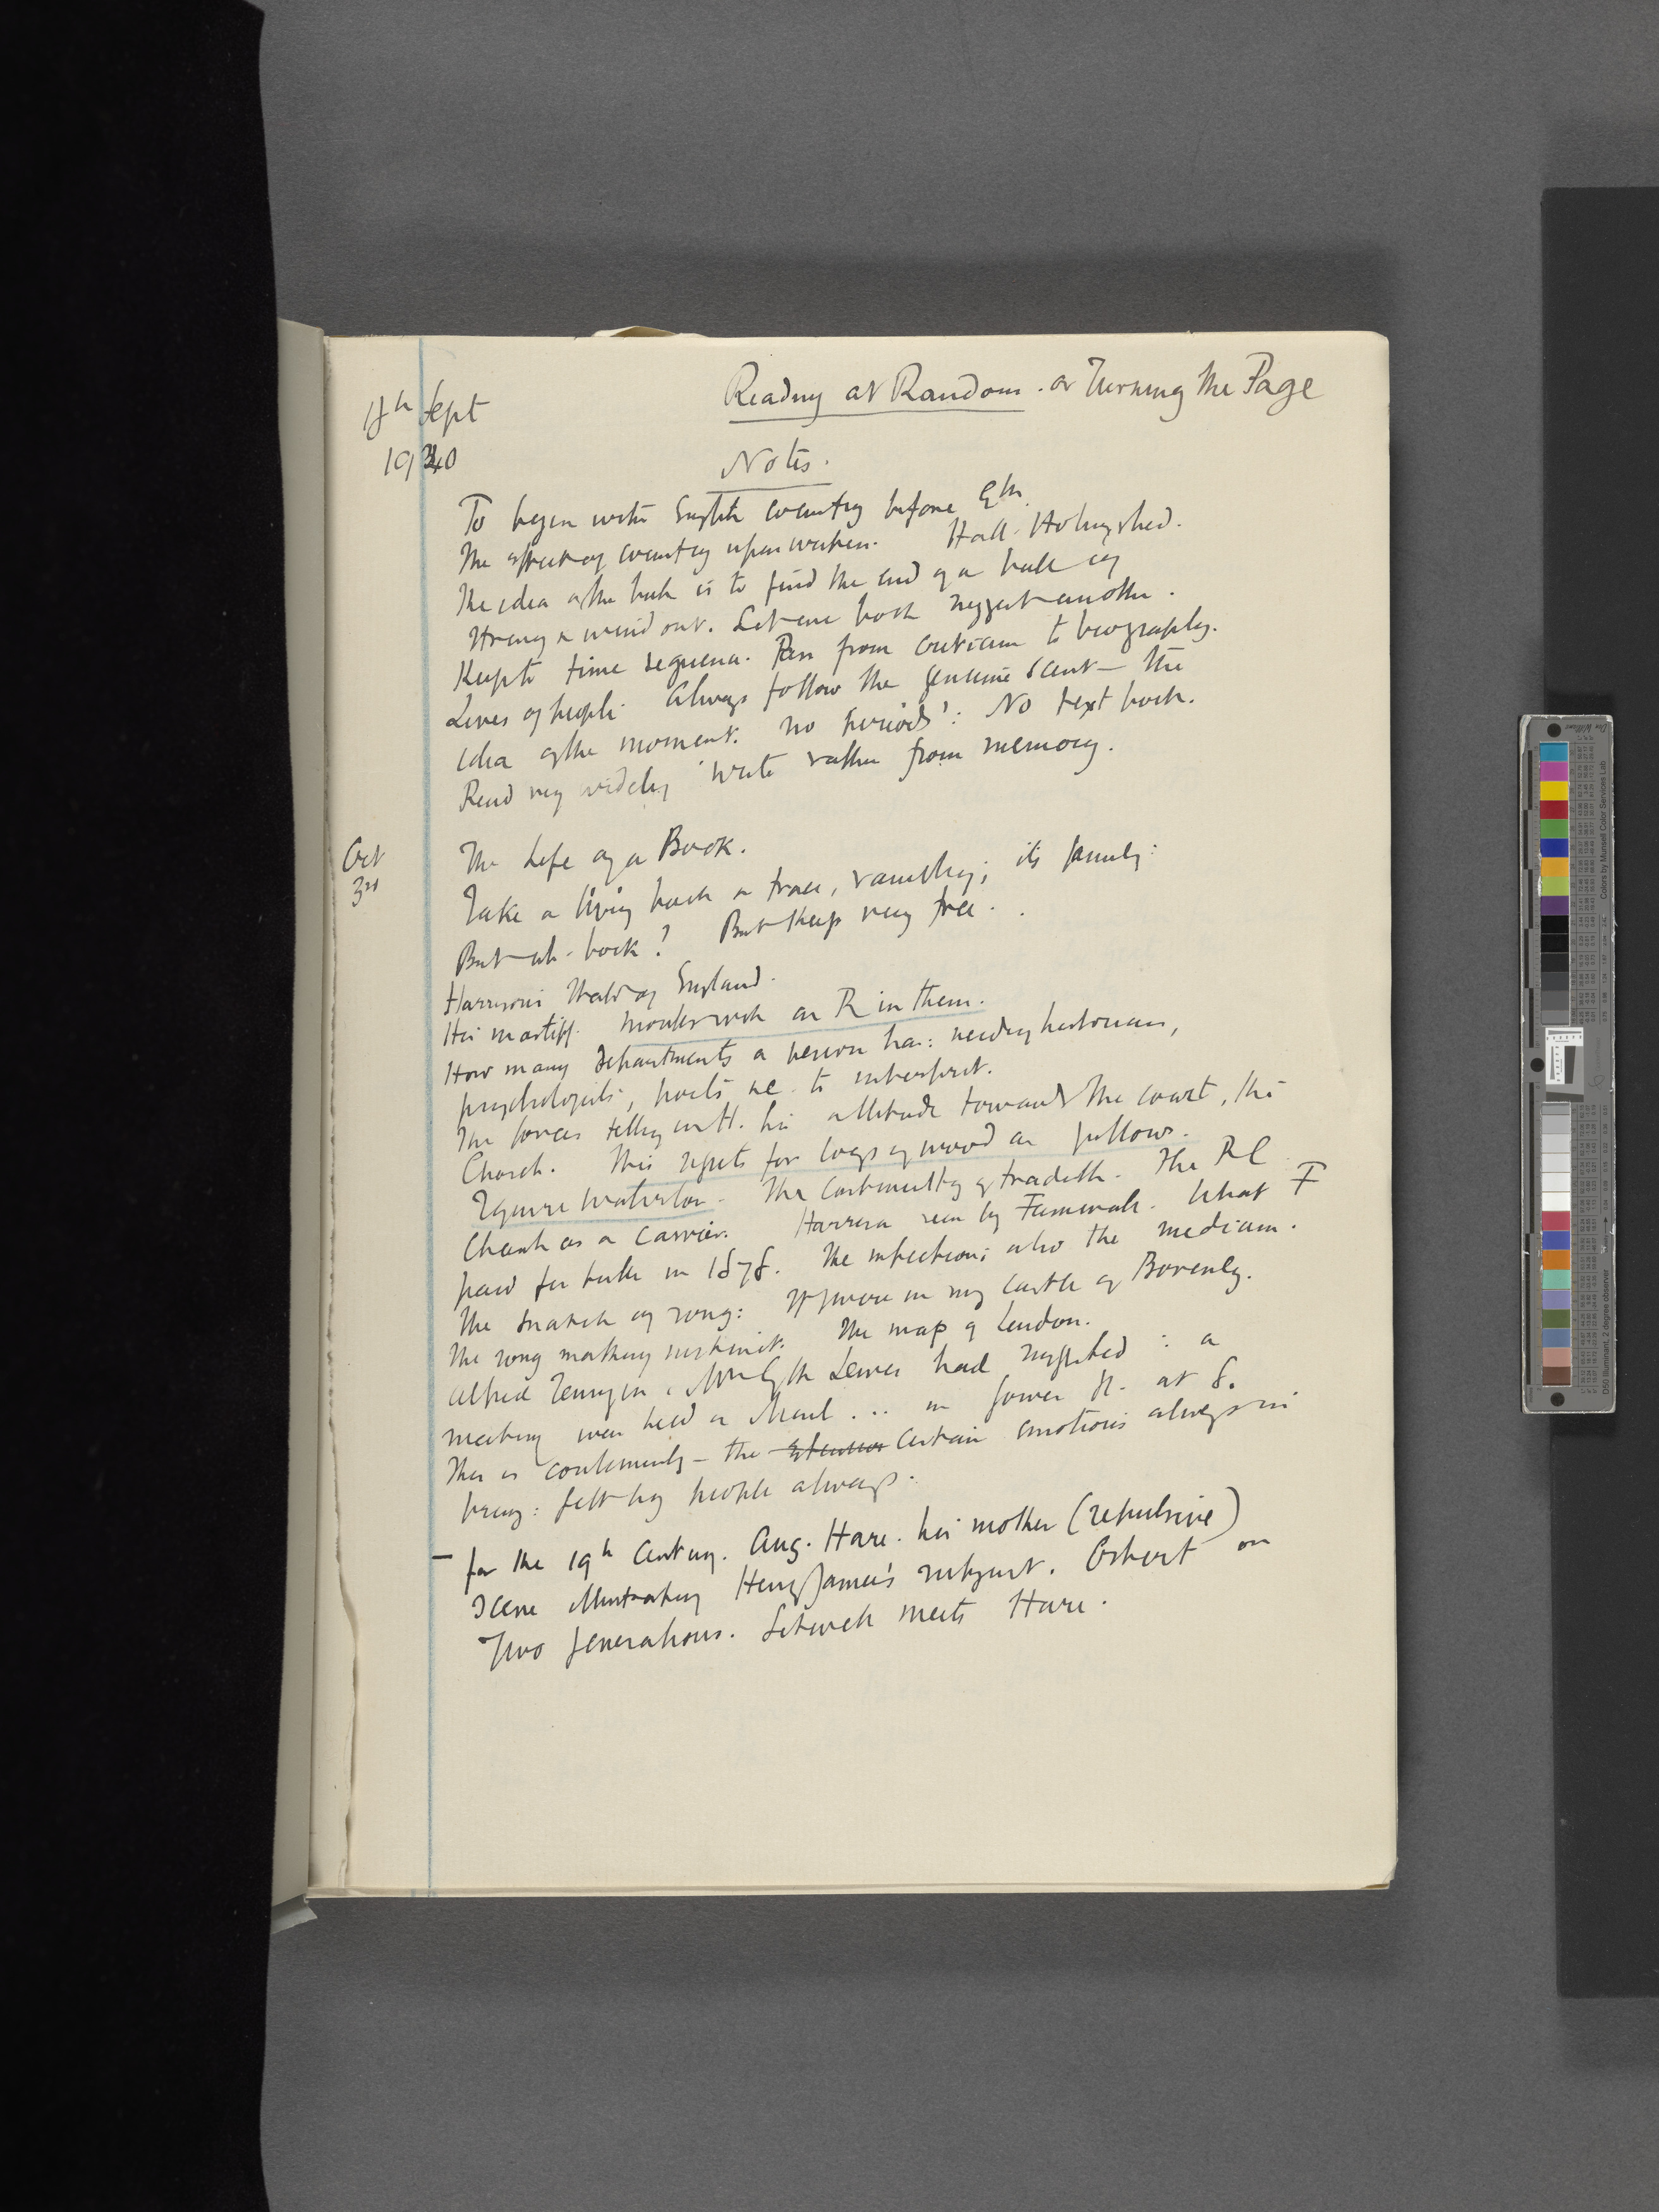 Reading at Random . or Turning the Page
18th Sept
1940
Notes.
To begin with English country before 9th.
The effect of country upon writers. Hall. Holinshed.
The idea of the book is to find the end of a ball of
string & wind out. Let one book suggest another.
Keep to time sequence. Pass from criticism to biography.
Lives of people. Always follow the genuine scent — the
idea of the moment. No 'periods': No text book.
Read very widely. Write rather from memory.
Oct
3rd
The Life of a Book.
Take a living book & trace, rambling; its family:
But wh. book? But keep very free.
Harrison's England.
His mastiff. Months with an R in them.
How many departments a person has: needing historians,
psychologists, poets &c. to interpret.
The forces telling with H. his attitude towards the court, the
Church. This regrets for logs of wood as pillows.
Squire Waterton. The continuity of tradition. The RC
Church as a carrier. Harrison seen by Furnivall. What F
paid for in 1878. The infection: also the medium.
The snatch of song: If I were in my castle of Bovenly.
The song making instinct. The map of London.
Alfred Tennyson. Lewes had neglected : a
meeting was held in ... in Gower St. at 8.
This is continuity — the certain emotions always in
being: felt by people always.
— for the 19th Century. Aug. Hare. his mother (repulsive)
scene illustrating Henry James's subject. Osbert on
Two generations. Sitwell meets Hare.